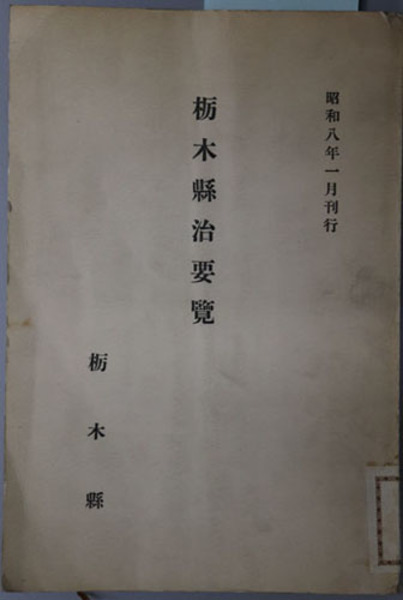 昭和八年一月刊行
栃木縣治要覽
栃木縣